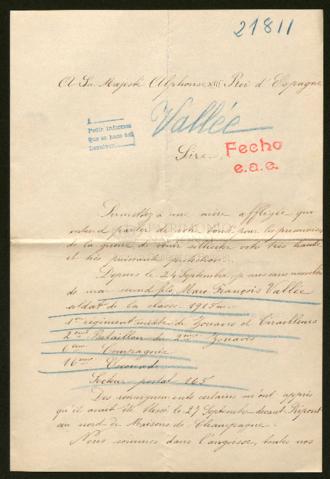 21811
A Sa Majesté Alphonse XIII Roi d'Espagne
Vallée
Petit informes
que se hace del
Sire,
Fecho
e.a.e.
Permettez à une mère affligée qui
entend parler de votre bonté pour les prisonniers
de la guerre de venir solliciter votre très haute
et très puissante protection.
Depuis le 24 Septembre, je suis sans nouvelles
de mon second fils Marc François Vallée
soldat de la classe 1915
1er régiment mixte de Zouaves et Tirailleurs
2me Bataillon du 2me Zouaves
6me Compagnie
16me Escouade
Secteur postal 165
Des renseignements certains m'ont appris
qu'il avait été blessé le 27 Septembre devant Ripont
au nord de Maisons de Champagne.
Nous sommes dans l'angoisse, toutes nos